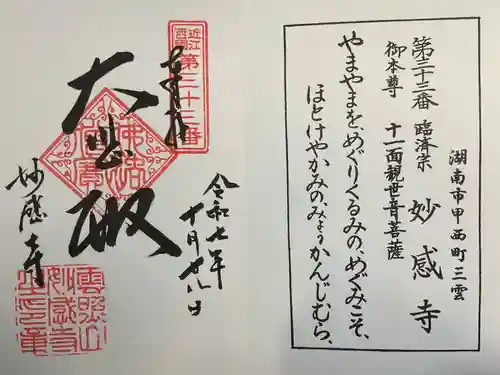 湖南市甲西町三雲
第三十三番 臨済宗 妙感寺
御本尊 十一面観世音菩薩
やまやまをめぐりくるみの、めぐみこそ、
ほとけやかみの、みょうかんじむら、
近江西国
第三十三番
奉拝
大悲殿
令和七年
十月廿八日
妙感寺
雲照山妙感寺